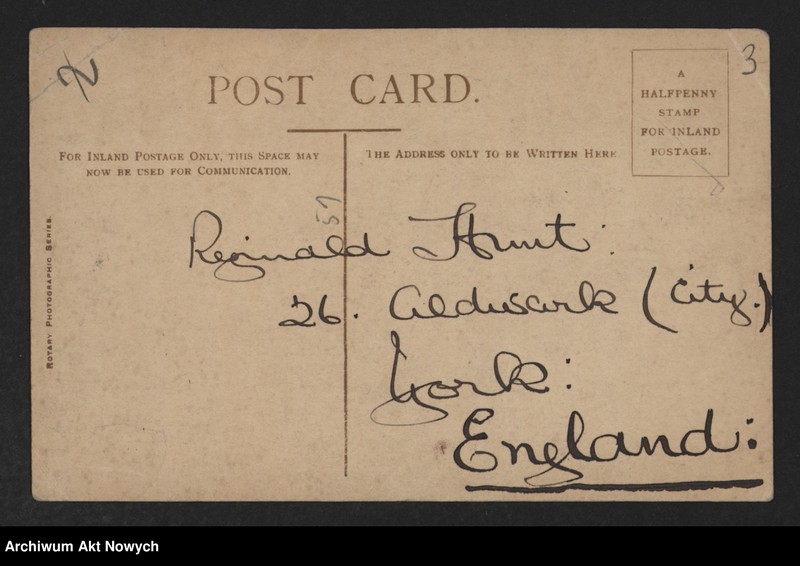 2
3
POST CARD.
A
HALFPENNY
STAMP
FOR INLAND
POSTAGE.
FOR INLAND POSTAGE ONLY, THIS SPACE MAY
NOW BE USED FOR COMMUNICATION.
THE ADDRESS ONLY TO BE WRITTEN HERE
57
ROTARY PHOTOGRAPHIC SERIES.
Reginald Hunt:
26. Aldwark (City.)
York:
England:
Archiwum Akt Nowych